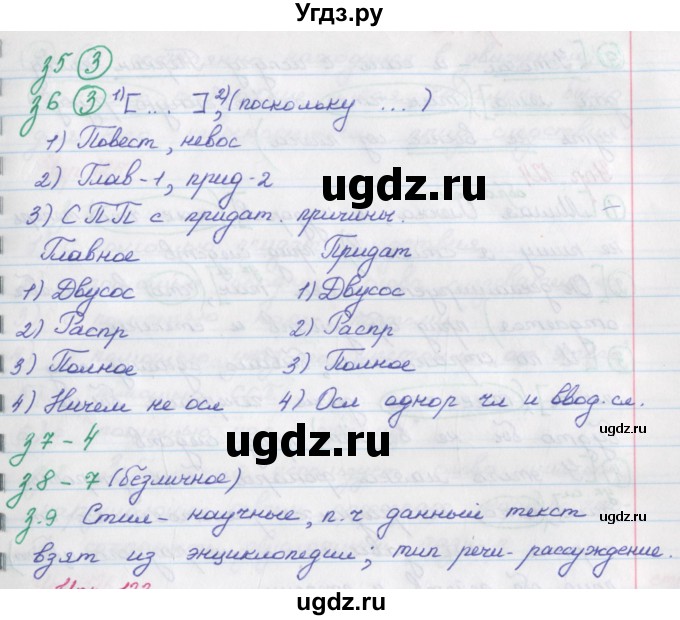 Угдз.ру
з5 ③
з6 ③ 1)[ ... ], 2)(поскольку ...)
1) Повест, невос
2) Глав-1, прид-2
3) СПП с придат причины.
Главное Придат
1) Двусос 1) Двусос
2) Распр 2) Распр
3) Полное 3) Полное
4) Ничем не осл 4) Осл однор чл и ввод. сл.
з7 - 4
з.8 - 7 (безличное)
з.9 Стил- научные, п.ч данный текст
взят из энциклопедии; тип речи- рассуждение.
ugdz.ru
ugdz.ru
ugdz.ru
ugdz.ru
ugdz.ru
ugdz.ru